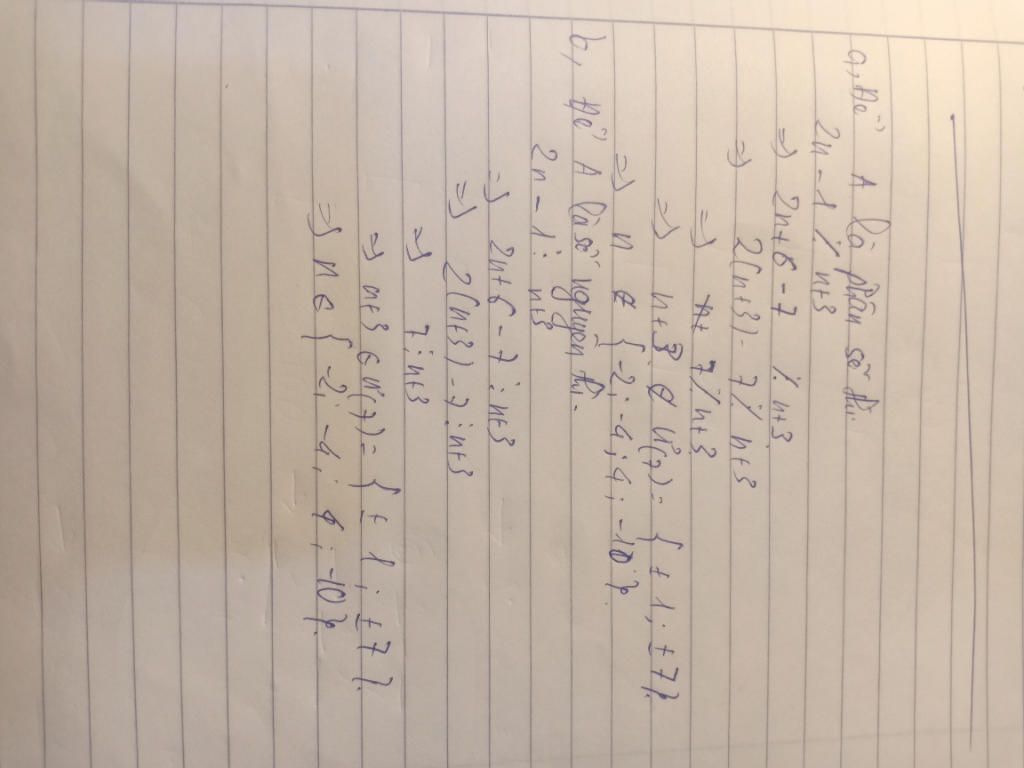 a, Để A là phân số thì
2n - 1 ⋮̸ n+3
=> 2n+6 - 7 ⋮̸ n+3
=> 2(n+3) - 7 ⋮̸ n+3
=> 7 ⋮̸ n+3
=> n+3 ∉ Ư(7) = { ± 1 ; ± 7 }.
=> n ∉ { -2 ; -4 ; 4 ; -10 }.
b, Để A là số nguyên thì.
2n - 1 ⋮ n+3
=> 2n+6 - 7 ⋮ n+3
=> 2(n+3) - 7 ⋮ n+3
=> 7 ⋮ n+3
=> n+3 ∈ Ư(7) = { ± 1 ; ± 7 }.
=> n ∈ { -2 ; -4 ; 4 ; -10 }.